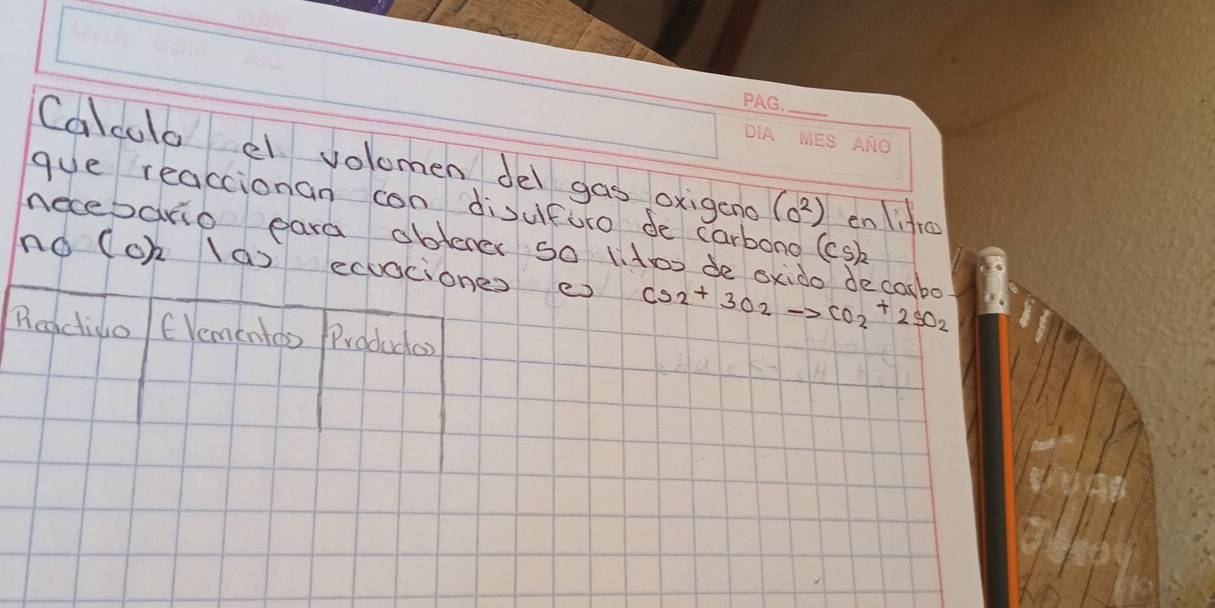 PAG.
DIA MES AÑO
Calcula el volumen del gas oxigeno (o²) en litros
que reaccionan con disulfuro de carbono (cs)2
necesario para obtener 50 litros de oxido de carbo-
no (o)2 las ecuaciones es cs2 + 302 -> co2 + 2so2
Reactivo Elementos Productos